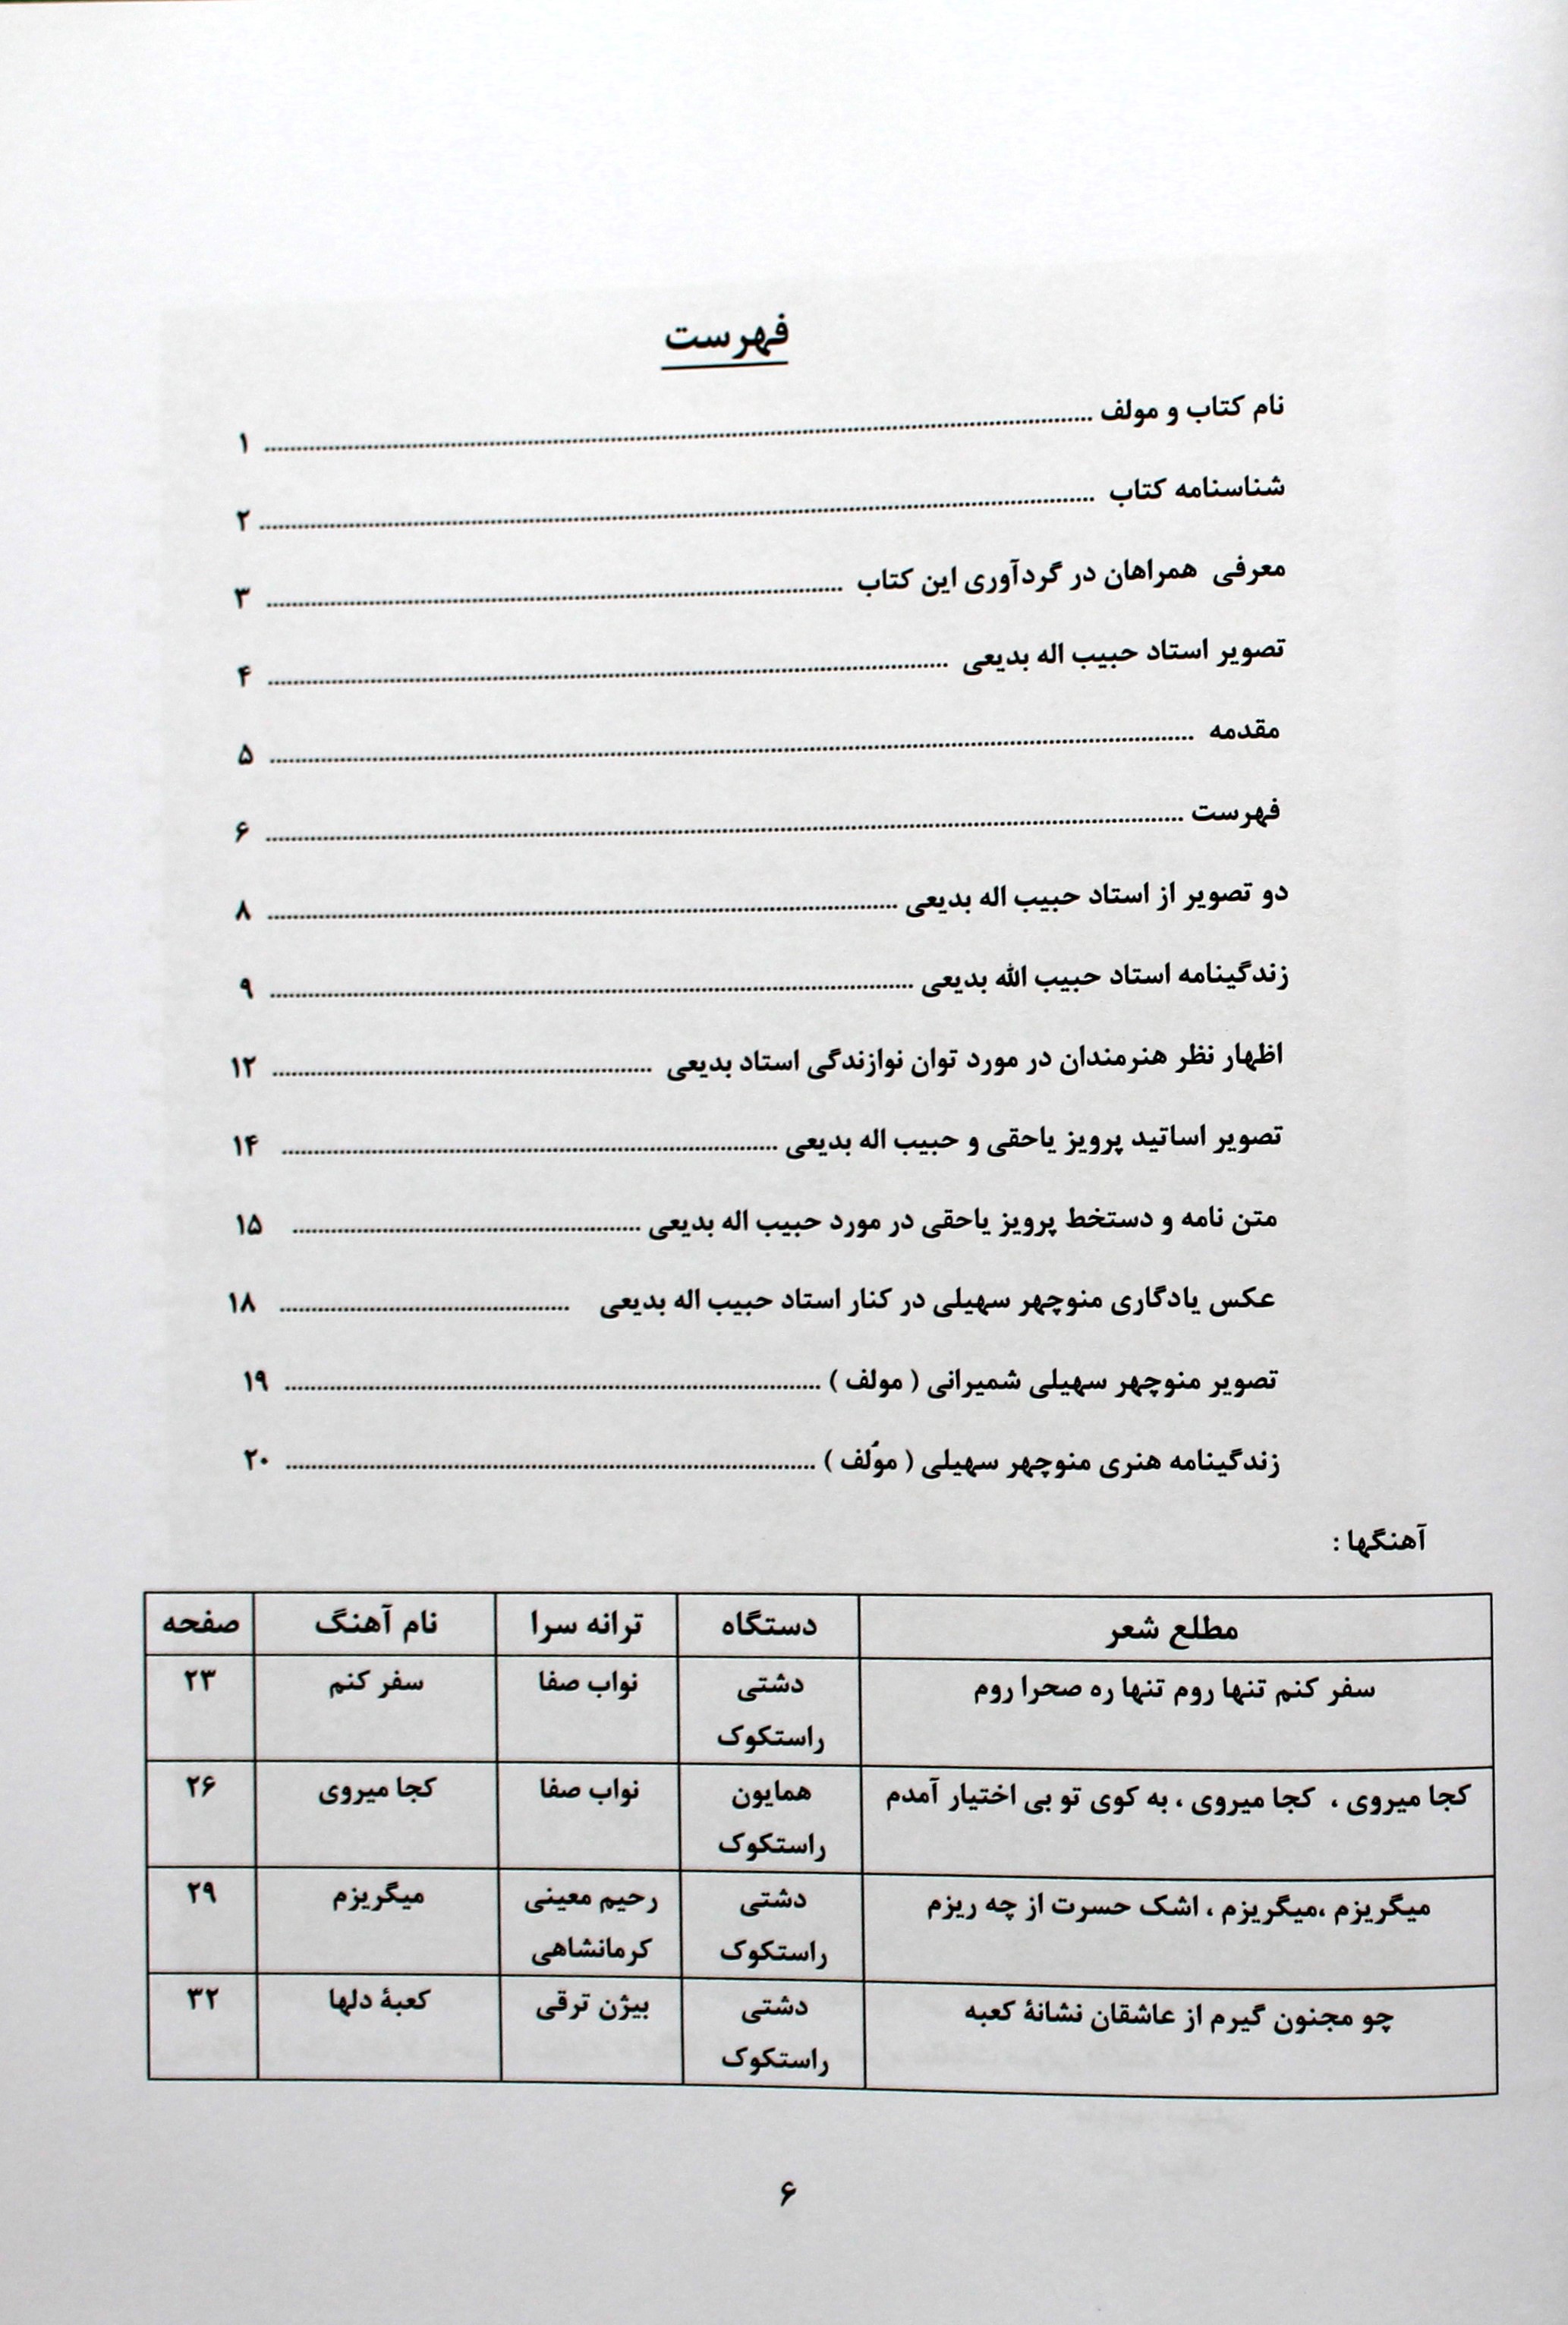 فهرست
نام کتاب و مولف ........................ ۱
شناسنامه کتاب ........................ ۲
معرفی همراهان در گردآوری این کتاب ........................ ۳
تصویر استاد حبیب اله بدیعی ........................ ۴
مقدمه ........................ ۵
فهرست ........................ ۶
دو تصویر از استاد حبیب اله بدیعی ........................ ۸
زندگینامه استاد حبیب الله بدیعی ........................ ۹
اظهار نظر هنرمندان در مورد توان نوازندگی استاد بدیعی ........................ ۱۲
تصویر اساتید پرویز یاحقی و حبیب اله بدیعی ........................ ۱۴
متن نامه و دستخط پرویز یاحقی در مورد حبیب اله بدیعی ........................ ۱۵
عکس یادگاری منوچهر سهیلی در کنار استاد حبیب اله بدیعی ........................ ۱۸
تصویر منوچهر سهیلی شمیرانی ( مولف ) ........................ ۱۹
زندگینامه هنری منوچهر سهیلی ( مؤلف ) ........................ ۲۰
آهنگها :
مطلع شعر دستگاه ترانه سرا نام آهنگ صفحه
سفر کنم تنها روم تنها ره صحرا روم دشتی نواب صفا سفر کنم ۲۳
راستکوک
کجا میروی ، کجا میروی ، به کوی تو بی اختیار آمدم همایون نواب صفا کجا میروی ۲۶
راستکوک
میگریزم ،میگریزم ، اشک حسرت از چه ریزم دشتی رحیم معینی میگریزم ۲۹
راستکوک کرمانشاهی
چو مجنون گیرم از عاشقان نشانۀ کعبه دشتی بیژن ترقی کعبۀ دلها ۳۲
راستکوک
۶